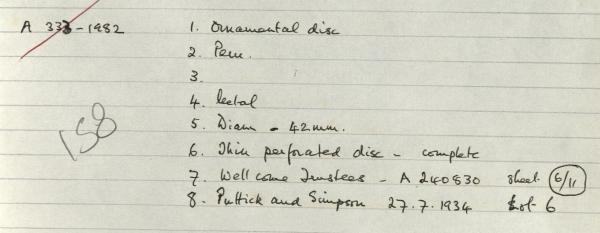 A 333-1982 1. Ornamental disc
2. Peru.
3.
4. Metal
5. Diam - 42mm.
6. Thin perforated disc - complete
7. Wellcome Trustees - A 240830 sheet 6/11
8. Puttick and Simpson 27.7.1934 Lot 6
158